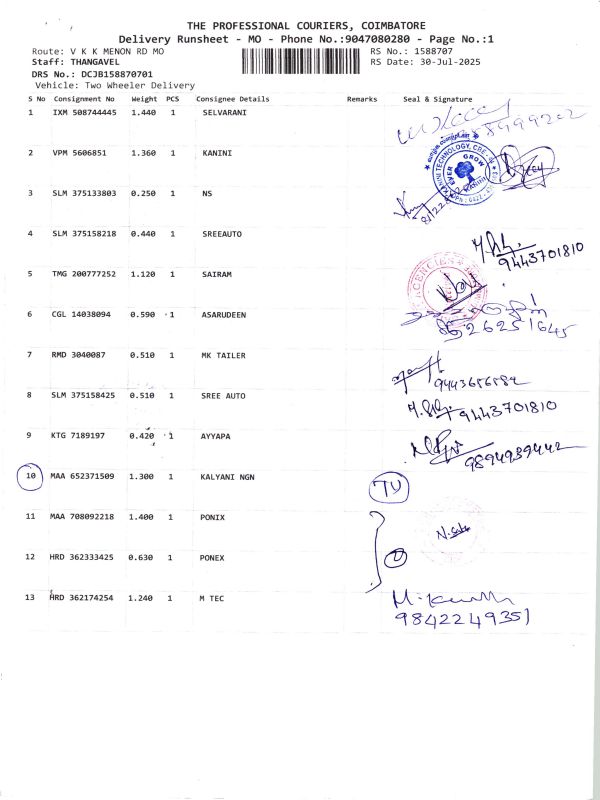 THE PROFESSIONAL COURIERS, COIMBATORE
Delivery Runsheet - MO - Phone No.:9047080280 - Page No.:1
Route: V K K MENON RD MO RS No.: 1588707
Staff: THANGAVEL RS Date: 30-Jul-2025
DRS No.: DCJB158870701
Vehicle: Two Wheeler Delivery
S No Consignment No Weight PCS Consignee Details Remarks Seal & Signature
1 IXM 508744445 1.440 1 SELVARANI
2 VPM 5606851 1.360 1 KANINI
KANINI TECHNOLOGY, CBE
EVER GROW
3 SLM 375133803 0.250 1 NS
4 SLM 375158218 0.440 1 SREEAUTO
9443701810
5 TMG 200777252 1.120 1 SAIRAM
AGENCIES
6 CGL 14038094 0.590 1 ASARUDEEN
7 RMD 3040087 0.510 1 MK TAILER
8 SLM 375158425 0.510 1 SREE AUTO
9443701810
9 KTG 7189197 0.420 1 AYYAPA
9894939442
10 MAA 652371509 1.300 1 KALYANI NGN
11 MAA 708092218 1.400 1 PONIX
12 HRD 362333425 0.630 1 PONEX
13 HRD 362174254 1.240 1 M TEC
9842249351